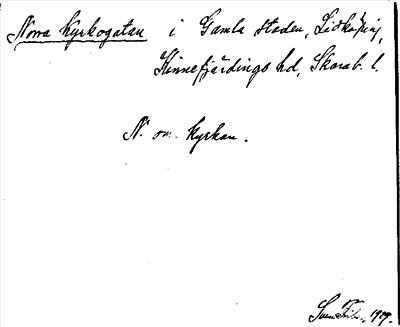 Norra Kyrkogatan i Gamla staden, Lidköping,
Kinnefjärdings hd, Skarab. l.
N. om kyrkan.
1929.